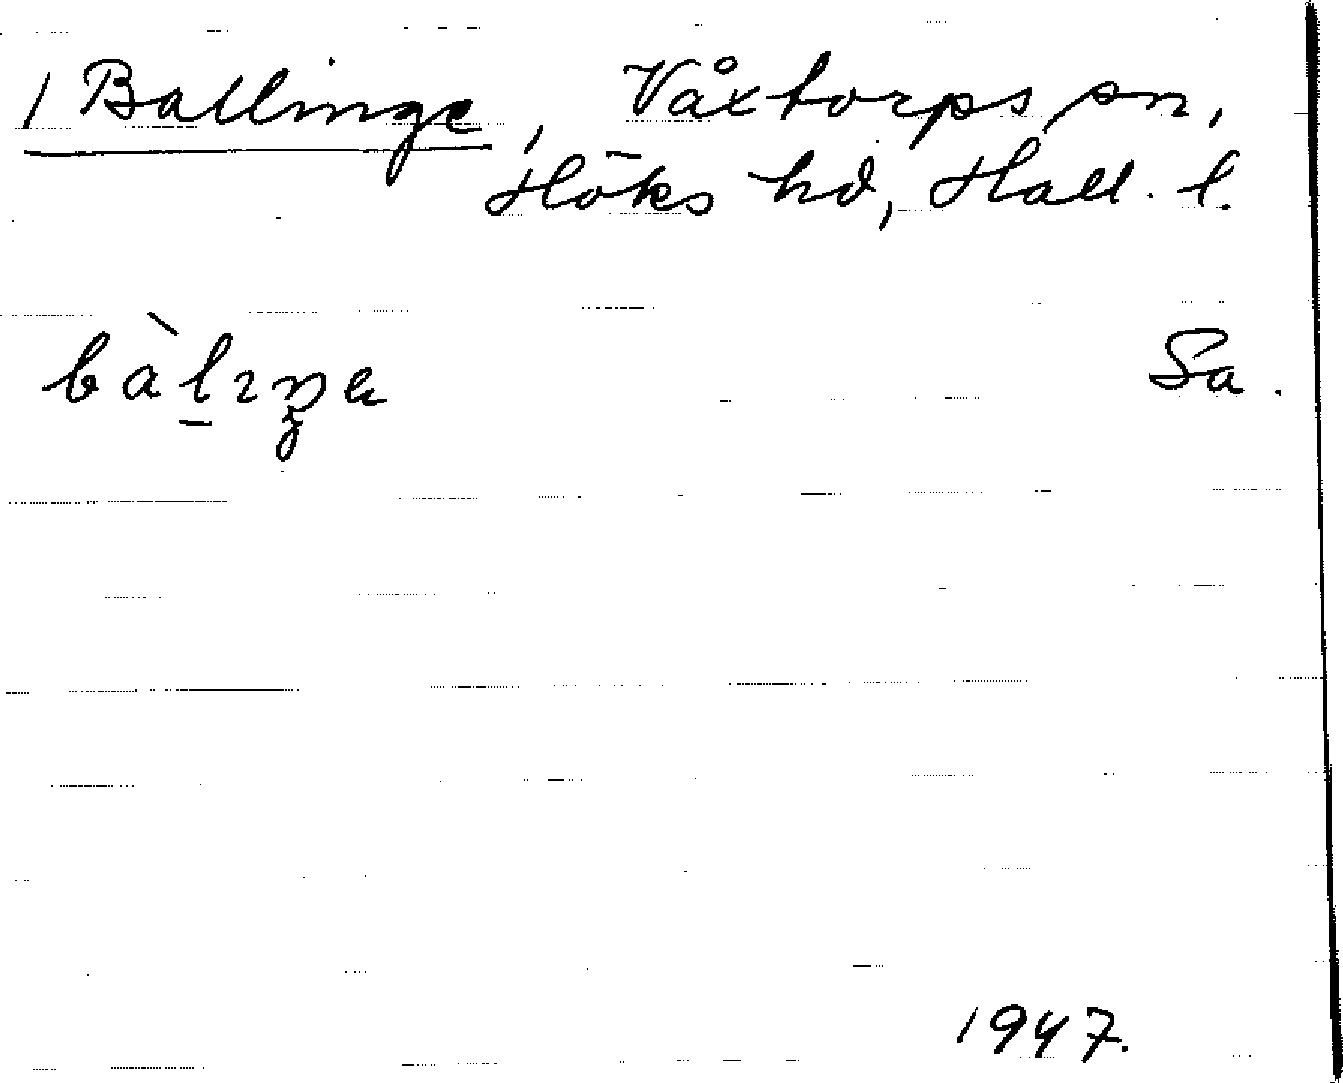 1 Ballinge, Våxtorps sn,
Höks hd, Hall. l.
bàl̠ıŋɐ Sa.
1947.